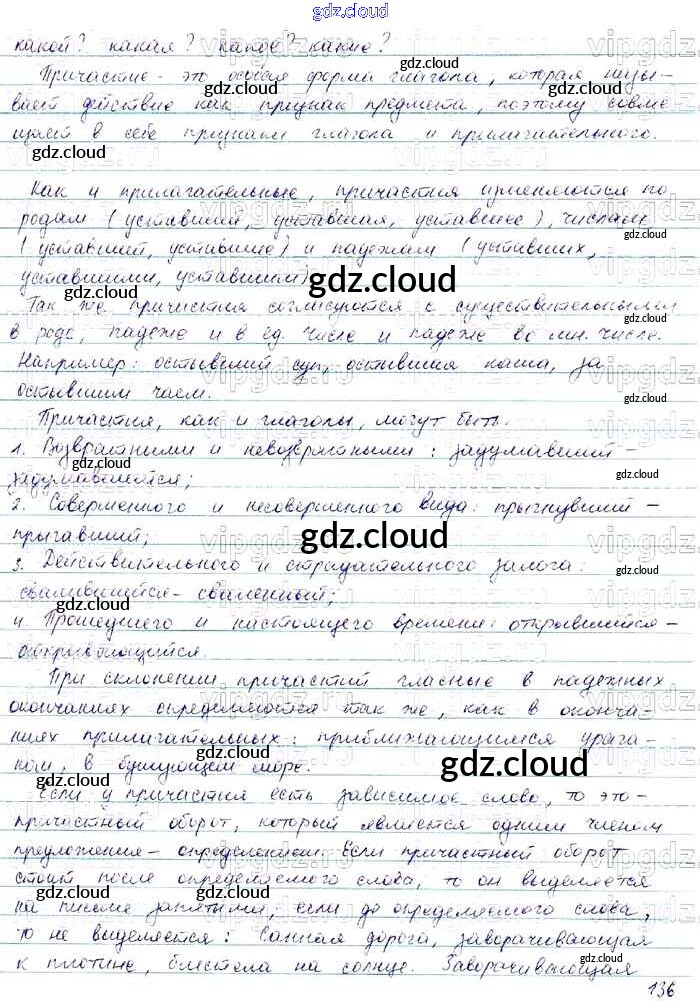 gdz.cloud
какой? какая? какое? какие?
Причастие - это особая форма глагола, которая назы-
вает действие как признак предмета, поэтому совме
щает в себе признаки глагола и прилагательного.
Как и прилагательные, причастия изменяются по
родам (уставший, уставшая, уставшее), числам
(уставший, уставшие) и падежам (уставших,
уставшими, уставшим)
Так же причастия согласуются с существительными
в роде, падеже и в ед. числе и падеже во мн. числе.
Например: остывший суп, остывшая каша, за
остывшим чаем.
Причастия, как и глаголы, могут быть:
1. Возвратными и невозвратными: задумавший -
задумавшийся;
2. Совершенного и несовершенного вида: прыгнувший -
прыгавший;
3. Действительного и страдательного залога:
свалившийся - сваленный;
4. Прошедшего и настоящего времени: открывшийся -
открывающийся.
При склонении причастий гласные в падежных
окончаниях определяются так же, как в оконча-
ниях прилагательных: приближающимся урага-
ном, в бушующем море.
Если у причастия есть зависимое слово, то это -
причастный оборот, который является одним членом
предложения - определением. Если причастный оборот
стоит после определяемого слова, то он выделяется
на письме запятыми, если до определяемого слова,
то не выделяется: Санная дорога, заворачивающая
к плотине, блестела на солнце. Заворачивающая
136